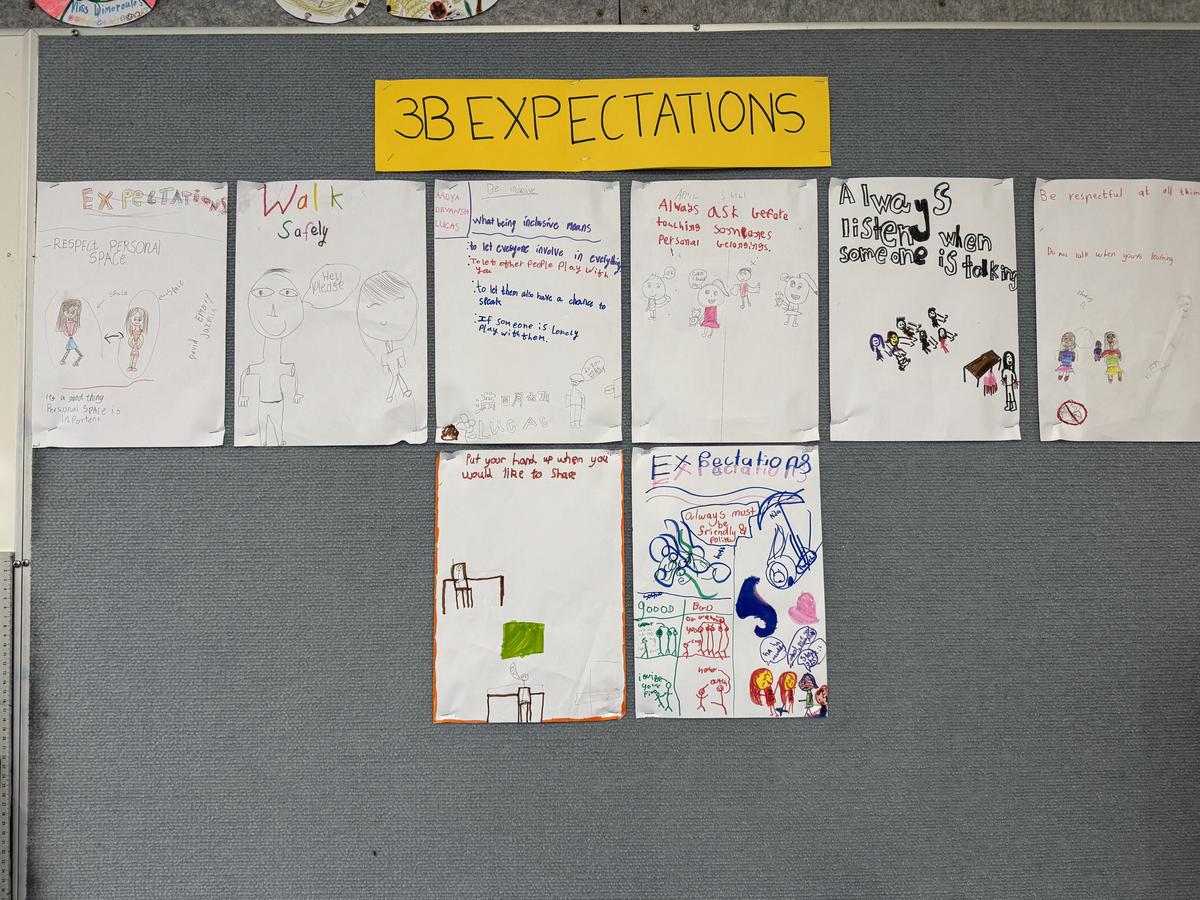 Miss Dimopoulos
3B EXPECTATIONS
EXPECTATIONS
RESPECT PERSONAL
SPACE
space
space
David Emory
Jazmin
It's a good thing
Personal SPACE is
Inportent
Walk
Safely
Hey
Please
AADYA
DEVANSH
LUCAS
Be inclusive
what being inclusive means
to let everyone involve in everything
To let other people play with
you
to let them also have a chance to
speak
If someone is lonely
play with them.
LUCAS
Always ask before
touching someones
Personal belongings.
Always
listen when
someone is talking
Be respectful at all
Do not talk when you're learning
Put your hand up when you
would like to share
Expectations
Expectations
always must
be
friendly &
polite
goood
Bad